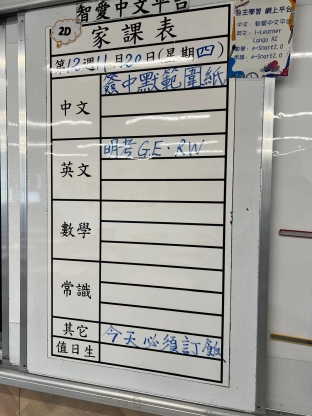 智愛中文平台
2D
家課表
第12週11月20日(星期四)
中文
簽中默範圍紙
英文
明考G.E、RW
數學
常識
其它
今天必須訂飯
值日生
自主學習 網上平台
中文：智愛中文平台
英文：i-Learner
Lango AI
數學：e-Smart2.0
常識：e-Smart2.0